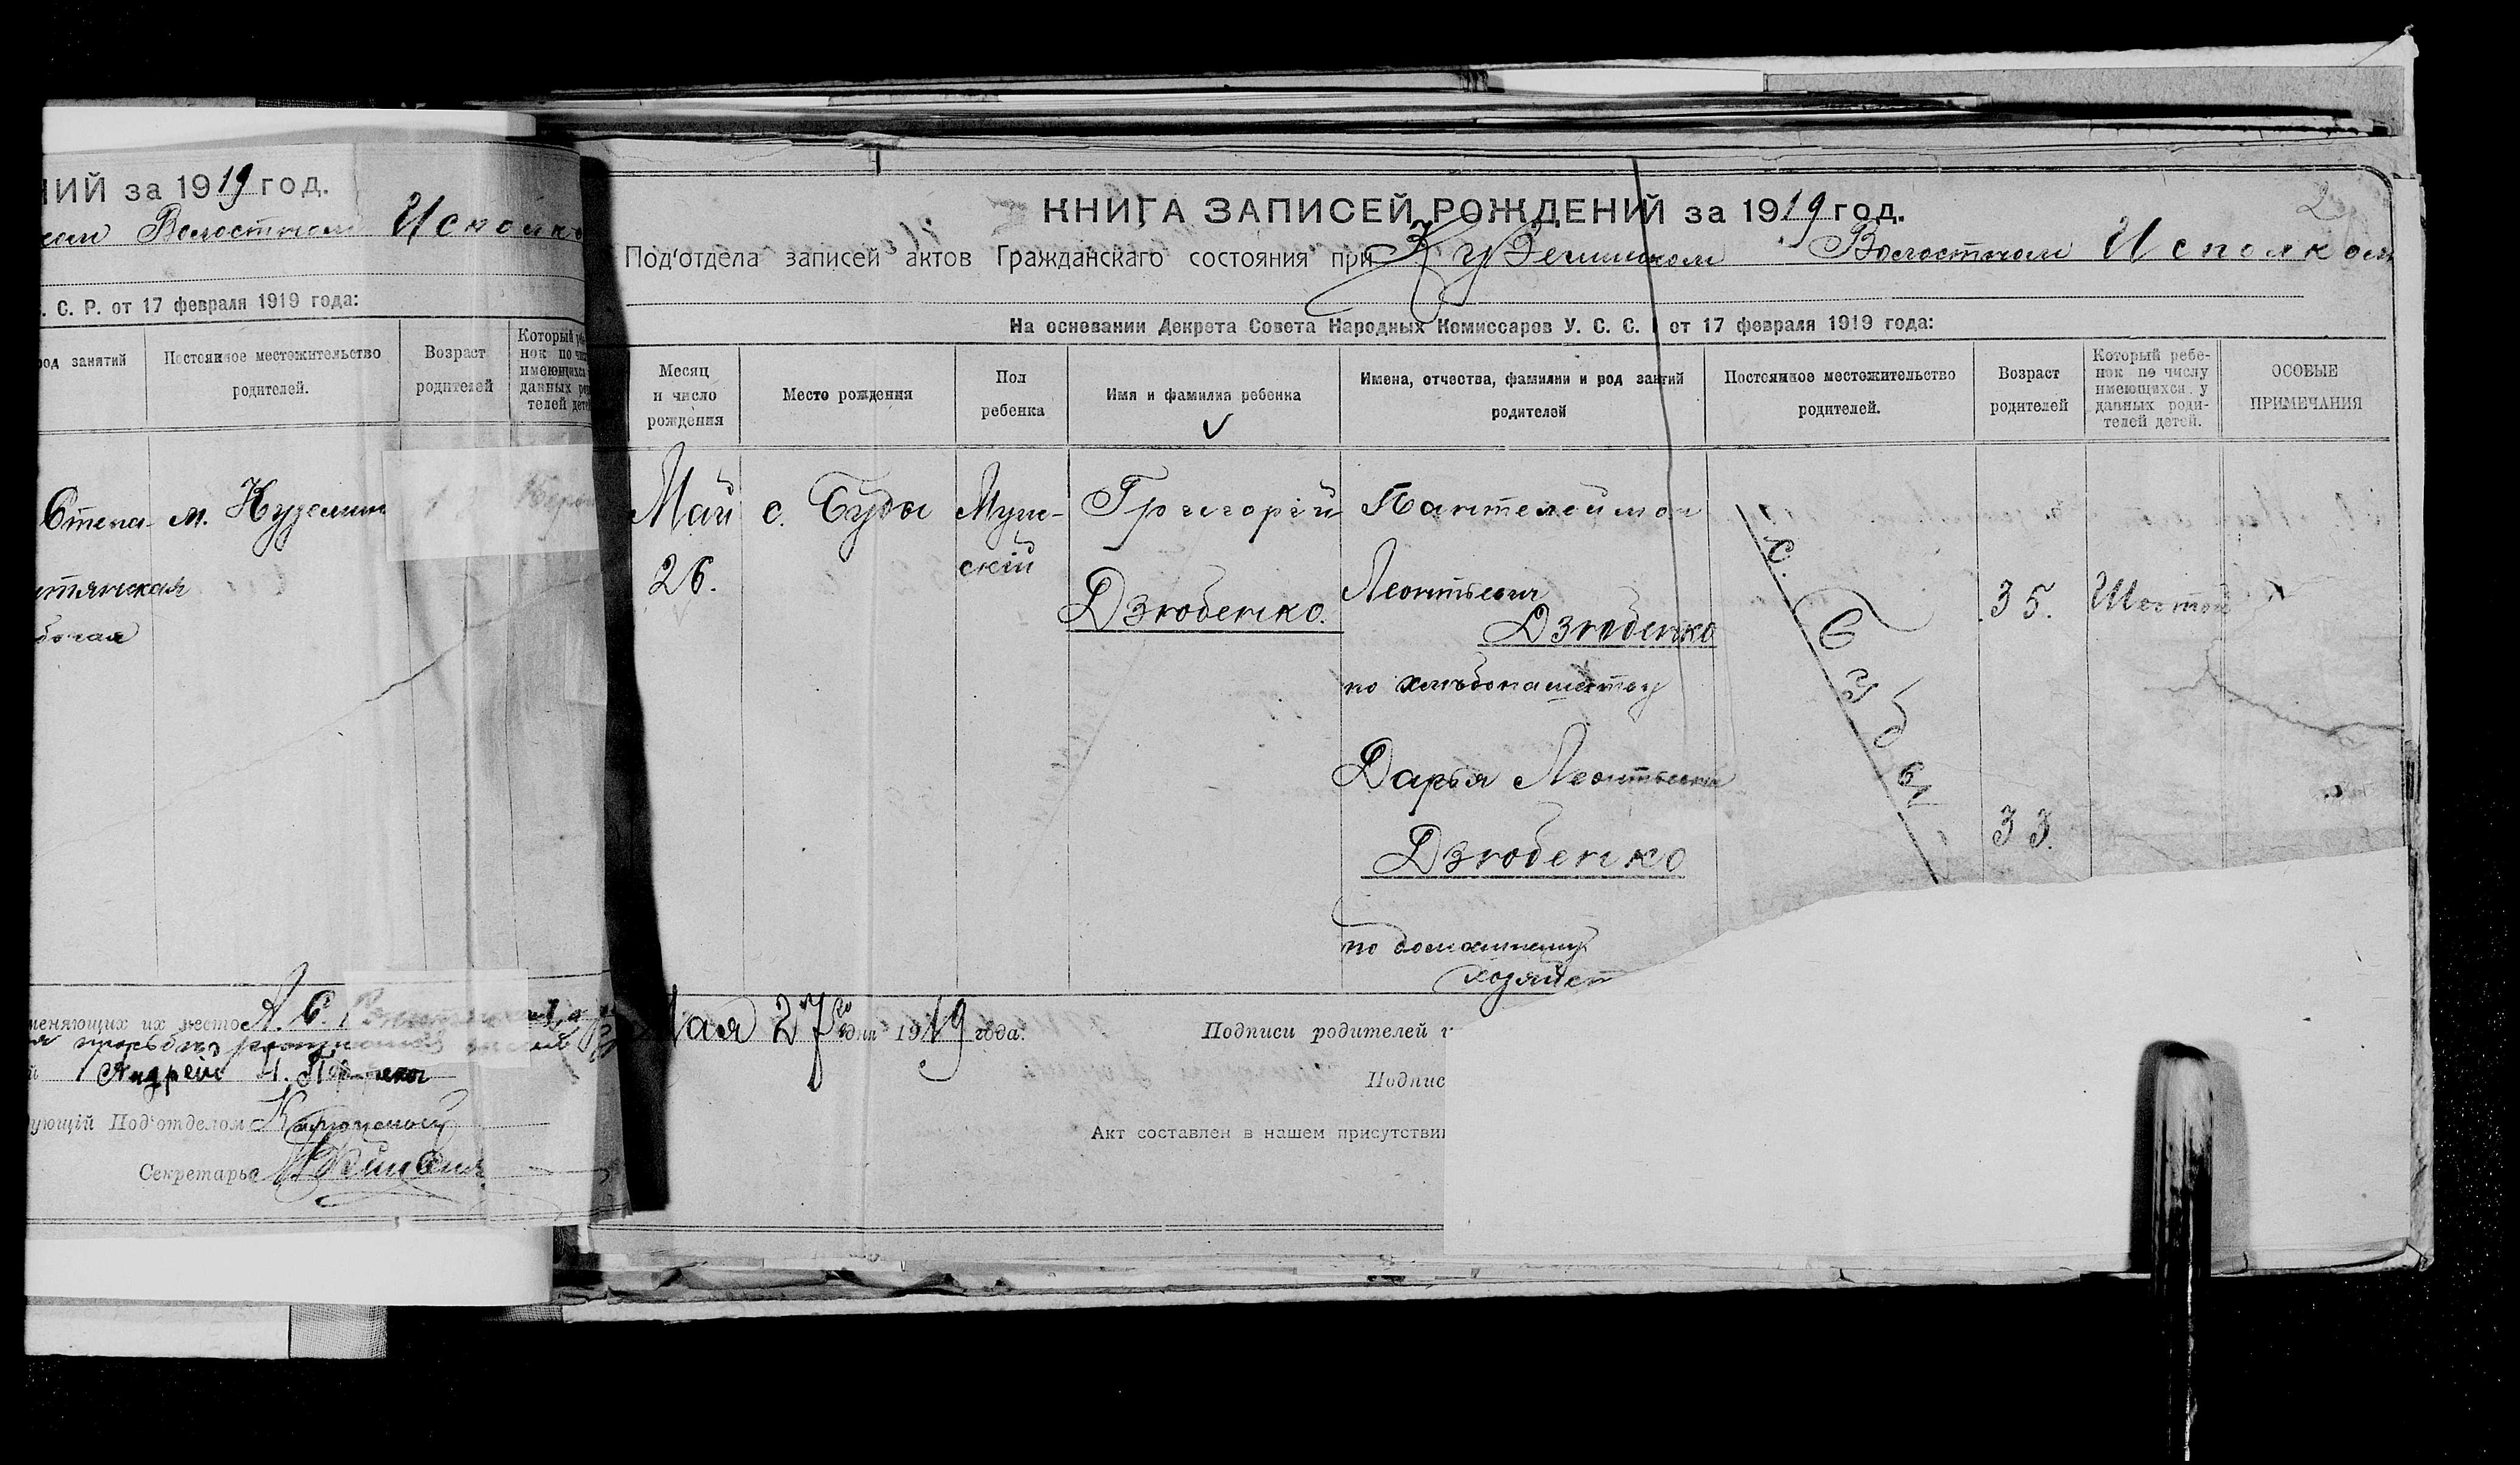 ИЙ за 1919 год.
Волостном Исполко
. С. Р. от 17 февраля 1919 года:
род занятий
Постоянное местожительство
родителей.
Возраст
родителей
Который ре
нок по чис
имеющихся
данных ро
телей дете
Степа-
м. Куземин
тянская
бочая
меняющих их место
Андрей
ующій Под'отделом
Секретарь
2
КНИГА ЗАПИСЕЙ РОЖДЕНИЙ за 1919 год.
Под'отдела записей актов Гражданскаго состояния при Куземином Волостном Исполком
На основании Декрета Совета Народных Комиссаров У. С. С. Р от 17 февраля 1919 года:
Месяц
и число
рождения
Место рождения
Пол
ребенка
Имя и фамилия ребенка
Имена, отчества, фамилии и род занятий
родителей
Постоянное местожительство
родителей.
Возраст
родителей
Который ребе-
нок по числу
имеющихся у
данных роди-
телей детей.
ОСОБЫЕ
ПРИМЕЧАНИЯ
Май
26.
с. Буды
Муж-
скій
Григорій
Дзюбенко.
Пантелеймон
Леонтьевич
Дзюбенко
по хлебопашеству
Дарья Леонтьевна
Дзюбенко
по домашнему
хозяйст
с. Буды
35.
33.
Шестой
Мая 27го дня 1919 года.
Подписи родителей и
Подпис
Акт составлен в нашем присутствии